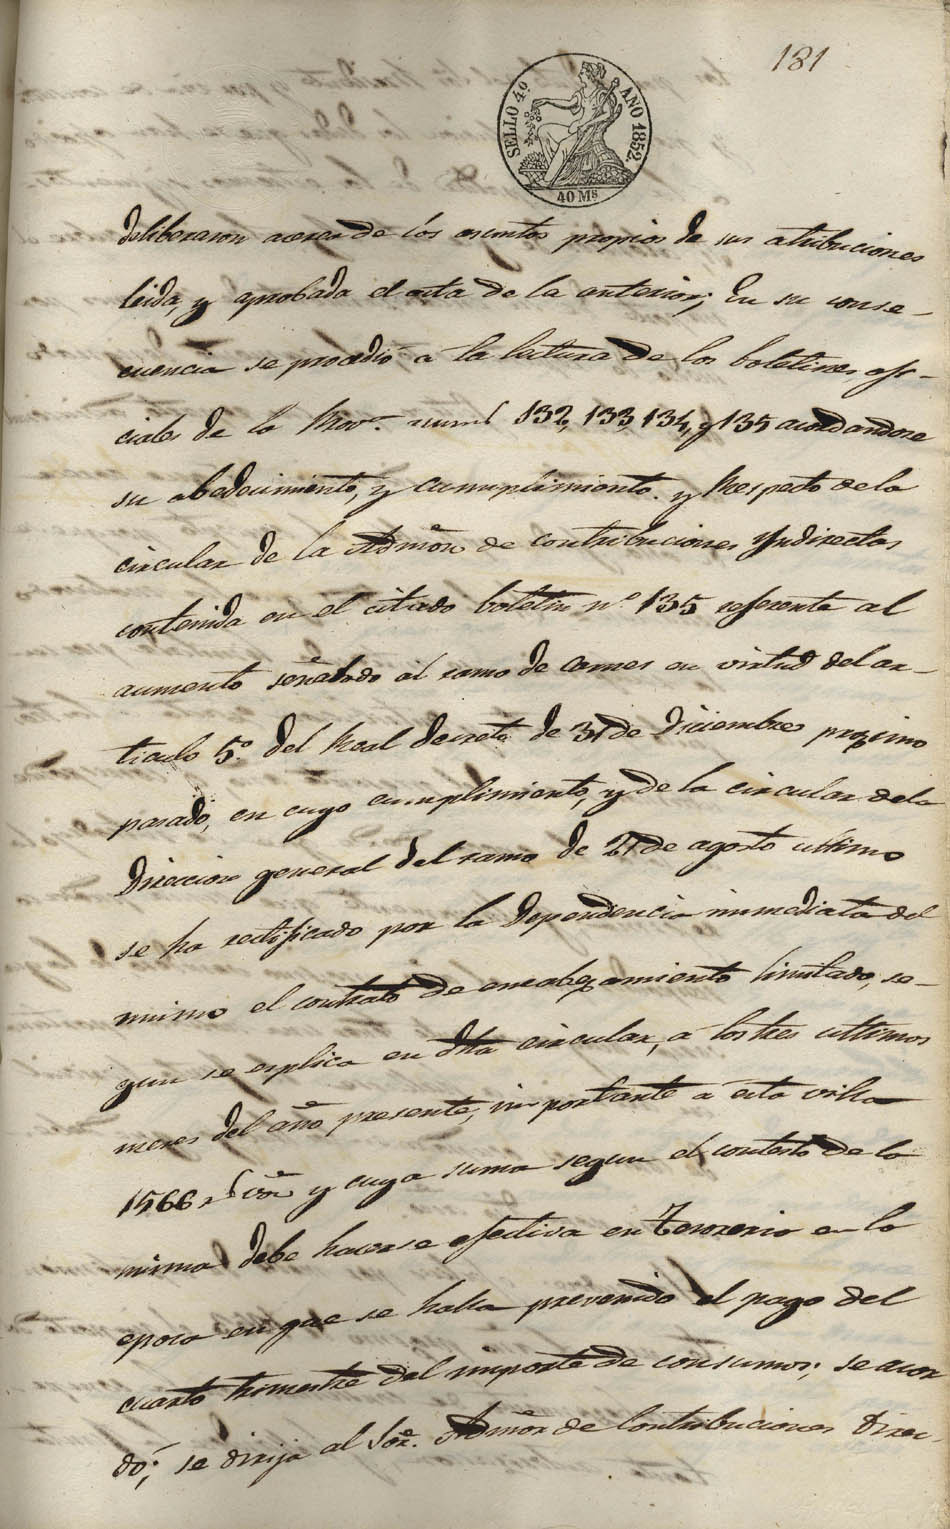 181
SELLO 4º AÑO 1852
40 Ms
deliberaron acerca de los asuntos propios de sus atribuciones
leida, y aprobada el acta de la anterior; En su conse-
cuencia se procedió a la lectura de los boletines ofi-
ciales de la Prov.ª num.s 132, 133, 134, y 135 acordandose
su obedecimiento, y cumplimiento. y Respecto de la
circular de la Admōn de contribuciones Yndirectas
contenida en el citado boletin nº 135 referente al
aumento señalado al ramo de carnes en virtud del ar-
ticulo 5º del Real decreto de 31 de Diciembre proximo
pasado, en cuyo cumplimiento, y de la circular de la
Direccion general del ramo de 27 de agosto ultimo
se ha rectificado por la Dependencia inmediata del
mismo el contrato de encabezamiento limitado, se-
gun se esplica en dha circular, a los tres ultimos
meses del año presente, importante a esta villa
1566 rs vōn y cuya suma segun el contesto de la
misma debe hacerse efectiva en Tesoreria en la
epoca en que se halla prevenido el pago del
cuarto trimestre del importe de consumos; se acor
dó; se dirija al Sōr. Admōr de Contribuciones Direc-